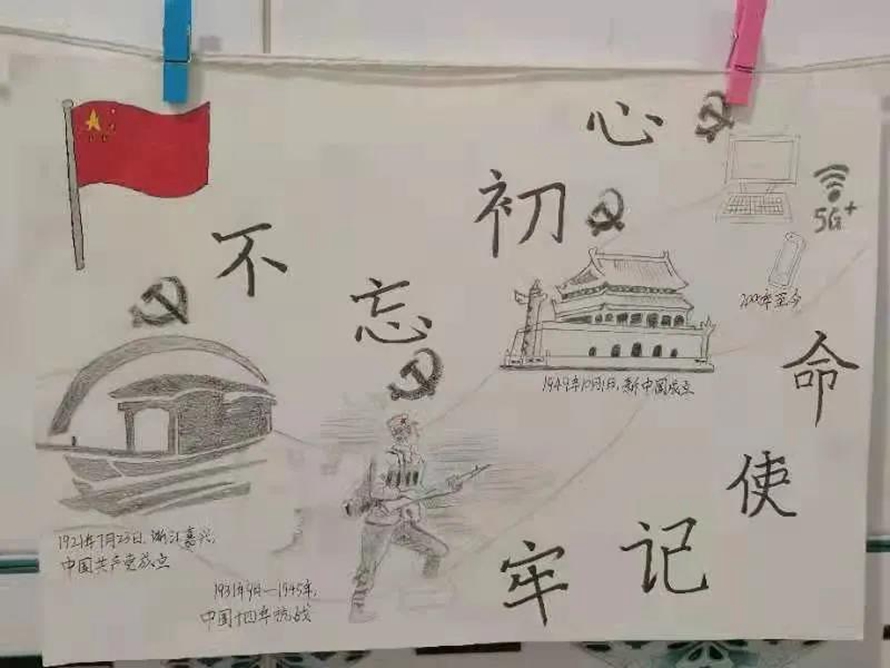 不忘初心
牢记使命
5G+
1921年7月23日,浙江嘉兴,
中国共产党成立
1931年9月—1945年,
中国十四年抗战
1949年10月1日,新中国成立